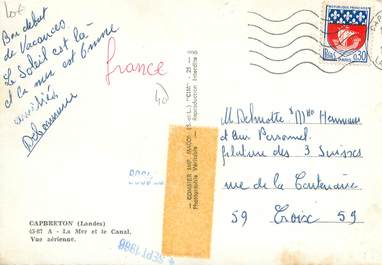 Lot
Bon début
de Vacances
Le Soleil est là
et la mer est bonne
amitiés
france
40
CAPBRETON (Landes)
45-87 A - La Mer et le Canal.
Vue aérienne.
COMBIER IMP. MACON (S.-et-L.) "CIM"
Photographie Véritable - Reproduction Interdite
SEPT 1966
REPUBLIQUE FRANÇAISE
PARIS
0,30
M Delmotte & Mme
et leur Personnel
filature des 3 Suisses
rue de la Centenaire
59 Croix 59